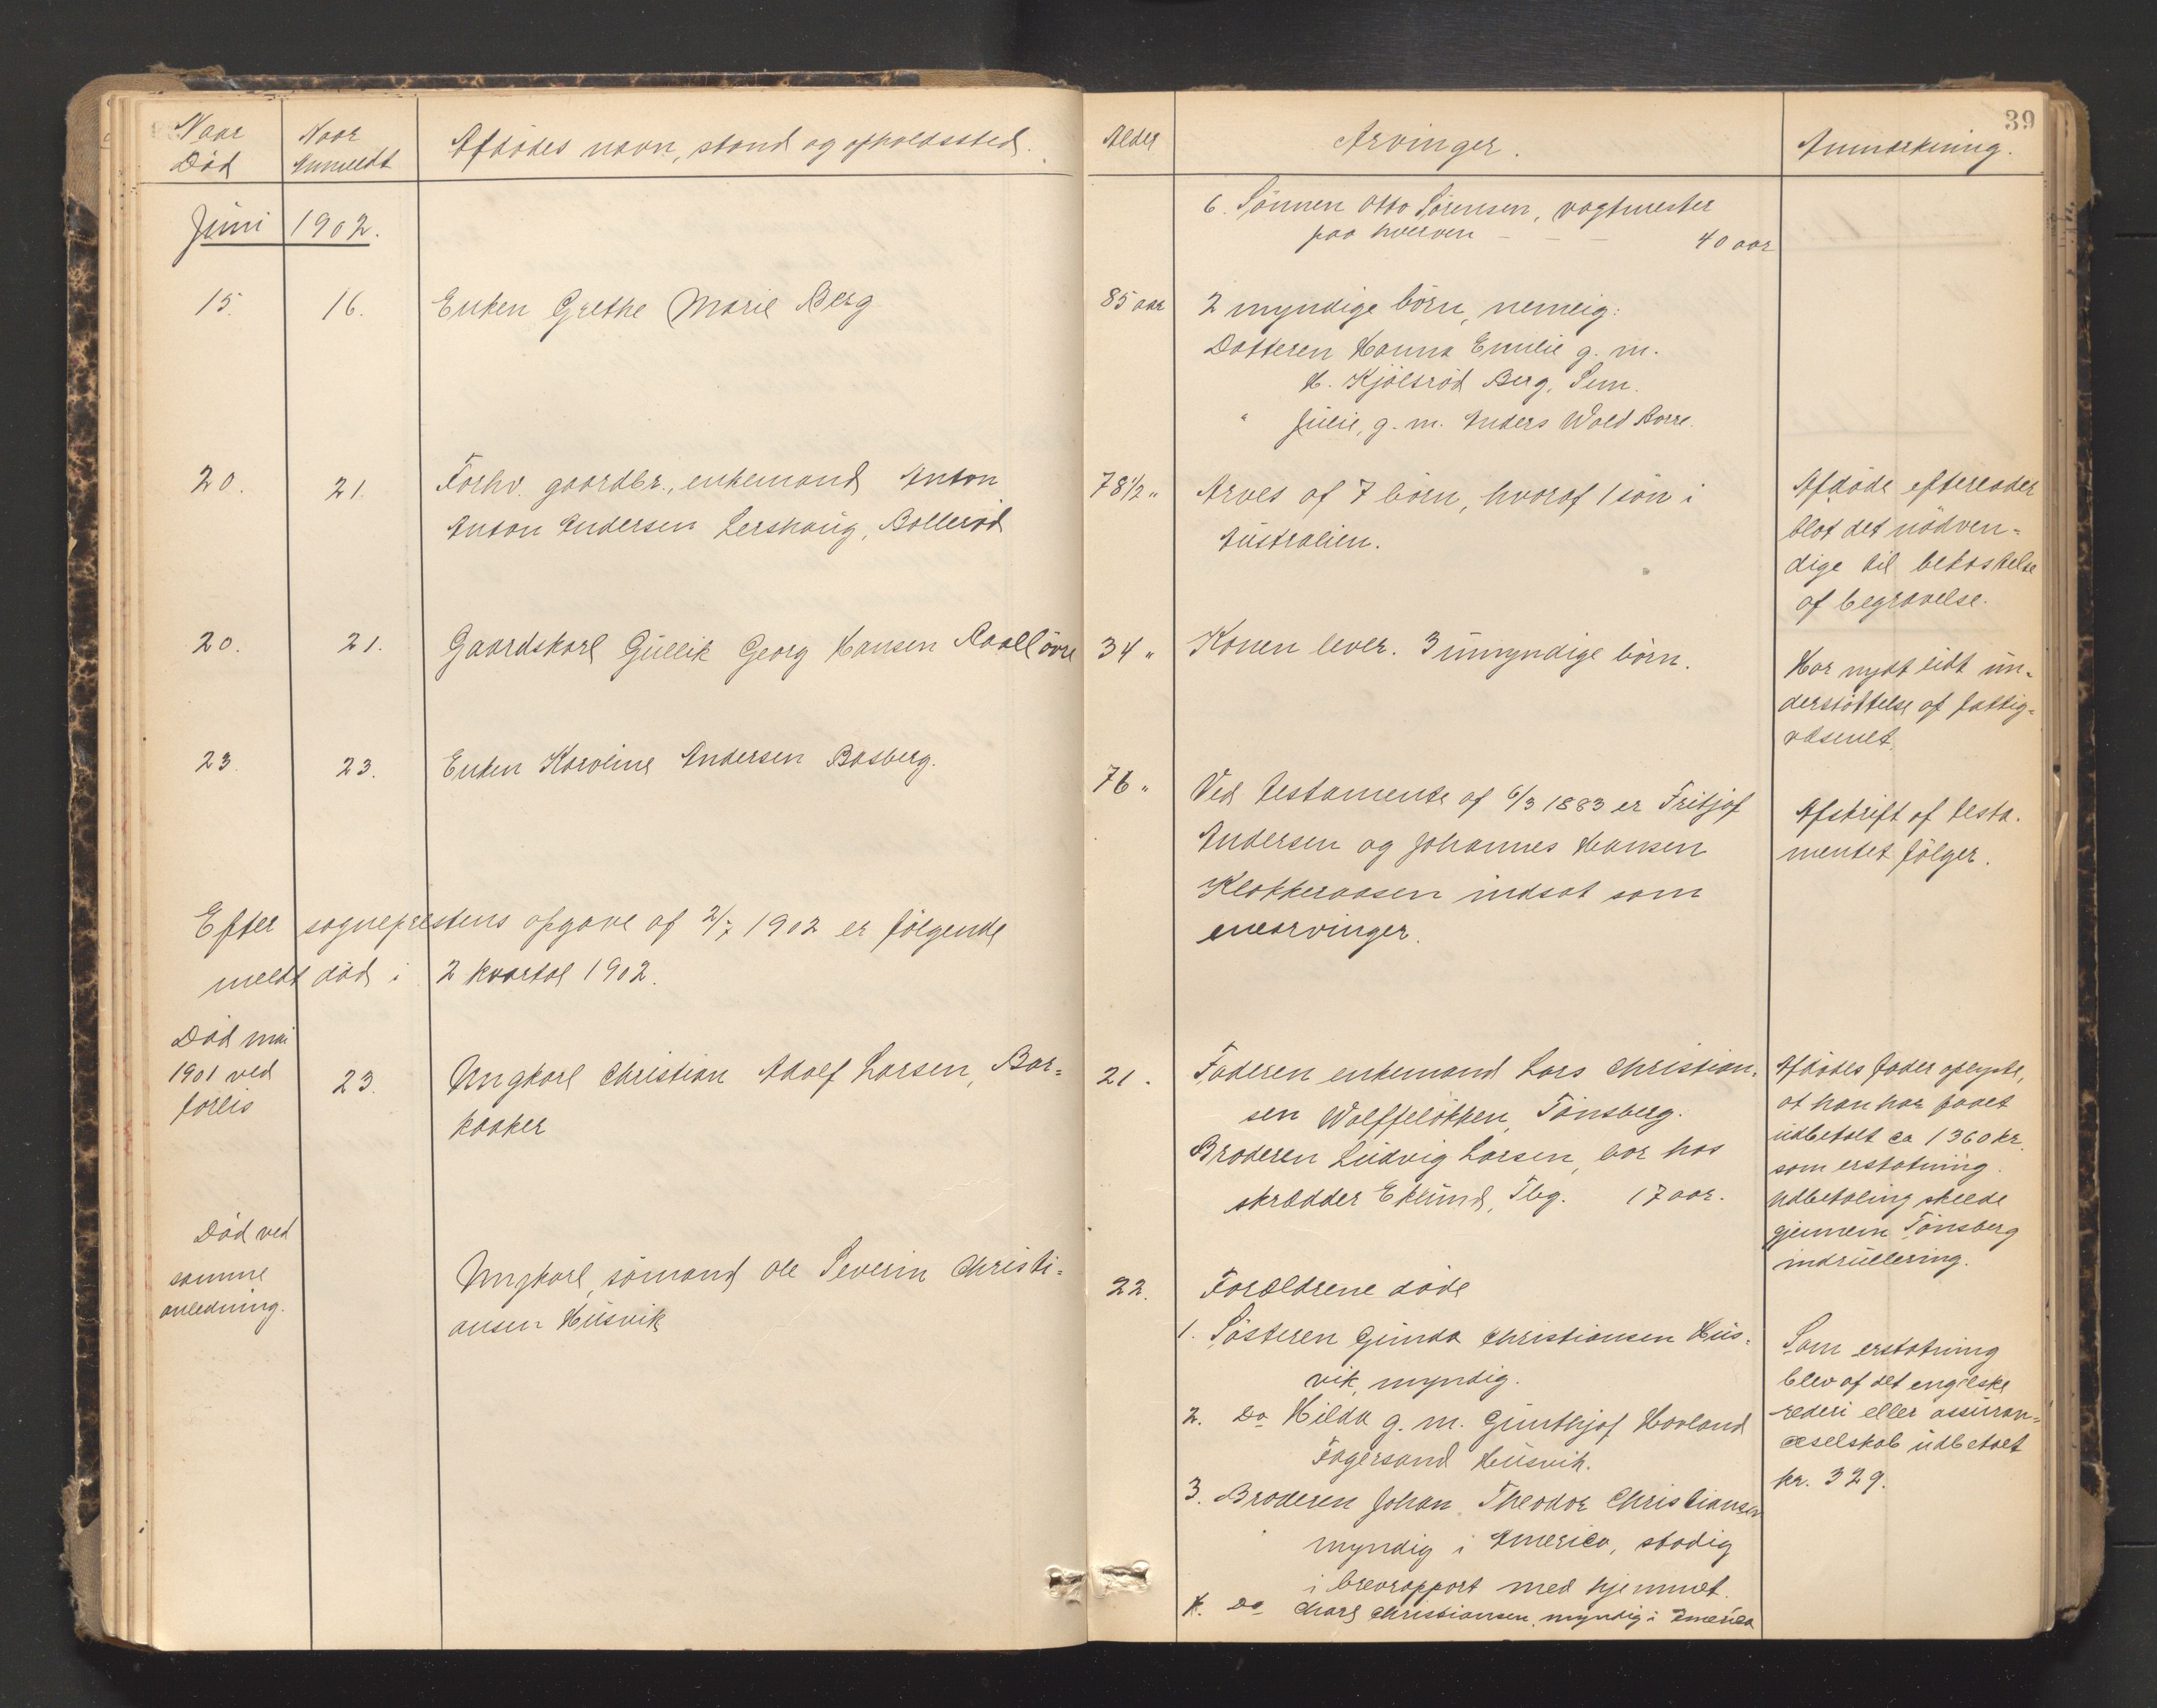 39
Naar Død
Naar Anmeldt
Afdødes navn, stand og opholdssted.
Alder
Arvinger.
Anmærkning.
Juni 1902.
6. Sønnen Otto Sørensen, vagtmester
paa hverven — — — 40 aar
15. 16. Enken Grethe Marie Berg
85 aar 2 myndige børn, nemlig:
Datteren Hanna Emilie g. m.
H. Kjølsrød Berg, Sem.
" Julie, g. m. Anders Wold Borre.
20. 21. Forhv. gaardbr., enkemand Anton
Anton Andersen Lershaug, Bollerød
78 1/2 " Arves af 7 børn, hvoraf 1 søn i
Australien.
Afdøde efterlader
blot det nødven=
dige til bekostelse
af begravelse.
20. 21. Gaardskarl Gullik Georg Hansen Raael øvre
34 " Konen lever. 3 umyndige børn.
Har nydt lidt un=
derstøttelse af fattig=
væsenet.
23. 23. Enken Karoline Andersen Basberg.
76 " Ved testamente af 6/3 1883 er Fritjof
Andersen og Johannes Hansen
Klokkeraasen indsat som
enearvinger.
Afskrift af testa.
mentet følger.
Efter sogneprestens opgave af 2/7 1902 er følgende
meldt død i 2 kvartal 1902.
Død mai
1901 ved
forlis
23. Ungkarl Christian Adolf Larsen, Bar=
kaaker
21. Faderen enkemand Lars Christian=
sen Wolffeløkken, Tønsberg.
Broderen Ludvig Larsen, bor hos
skrædder Eklund, Tbg. 17 aar.
Afdødes fader oplyste,
at han har faaet
udbetalt ca 1360 kr.
som erstatning.
Udbetaling skeede
gjennem Tønsberg
indrullering.
Død ved
samme
anledning.
Ungkarl, sømand Ole Severin Christi=
ansen Husvik
22. Forældrene døde
1. Søsteren Gunda Christiansen Hus=
vik, myndig.
2. Do Hilda g. m. Gunthjof Hovland
Fagersand Husvik.
3. Broderen Johan Theodor Christiansen
myndig i America, stadig
i brevrapport med hjemmet.
4. Do Charl Christiansen, myndig i America
Som erstatning
blev af det engelske
rederi eller assuran=
ceselskab udbetalt
kr. 329.